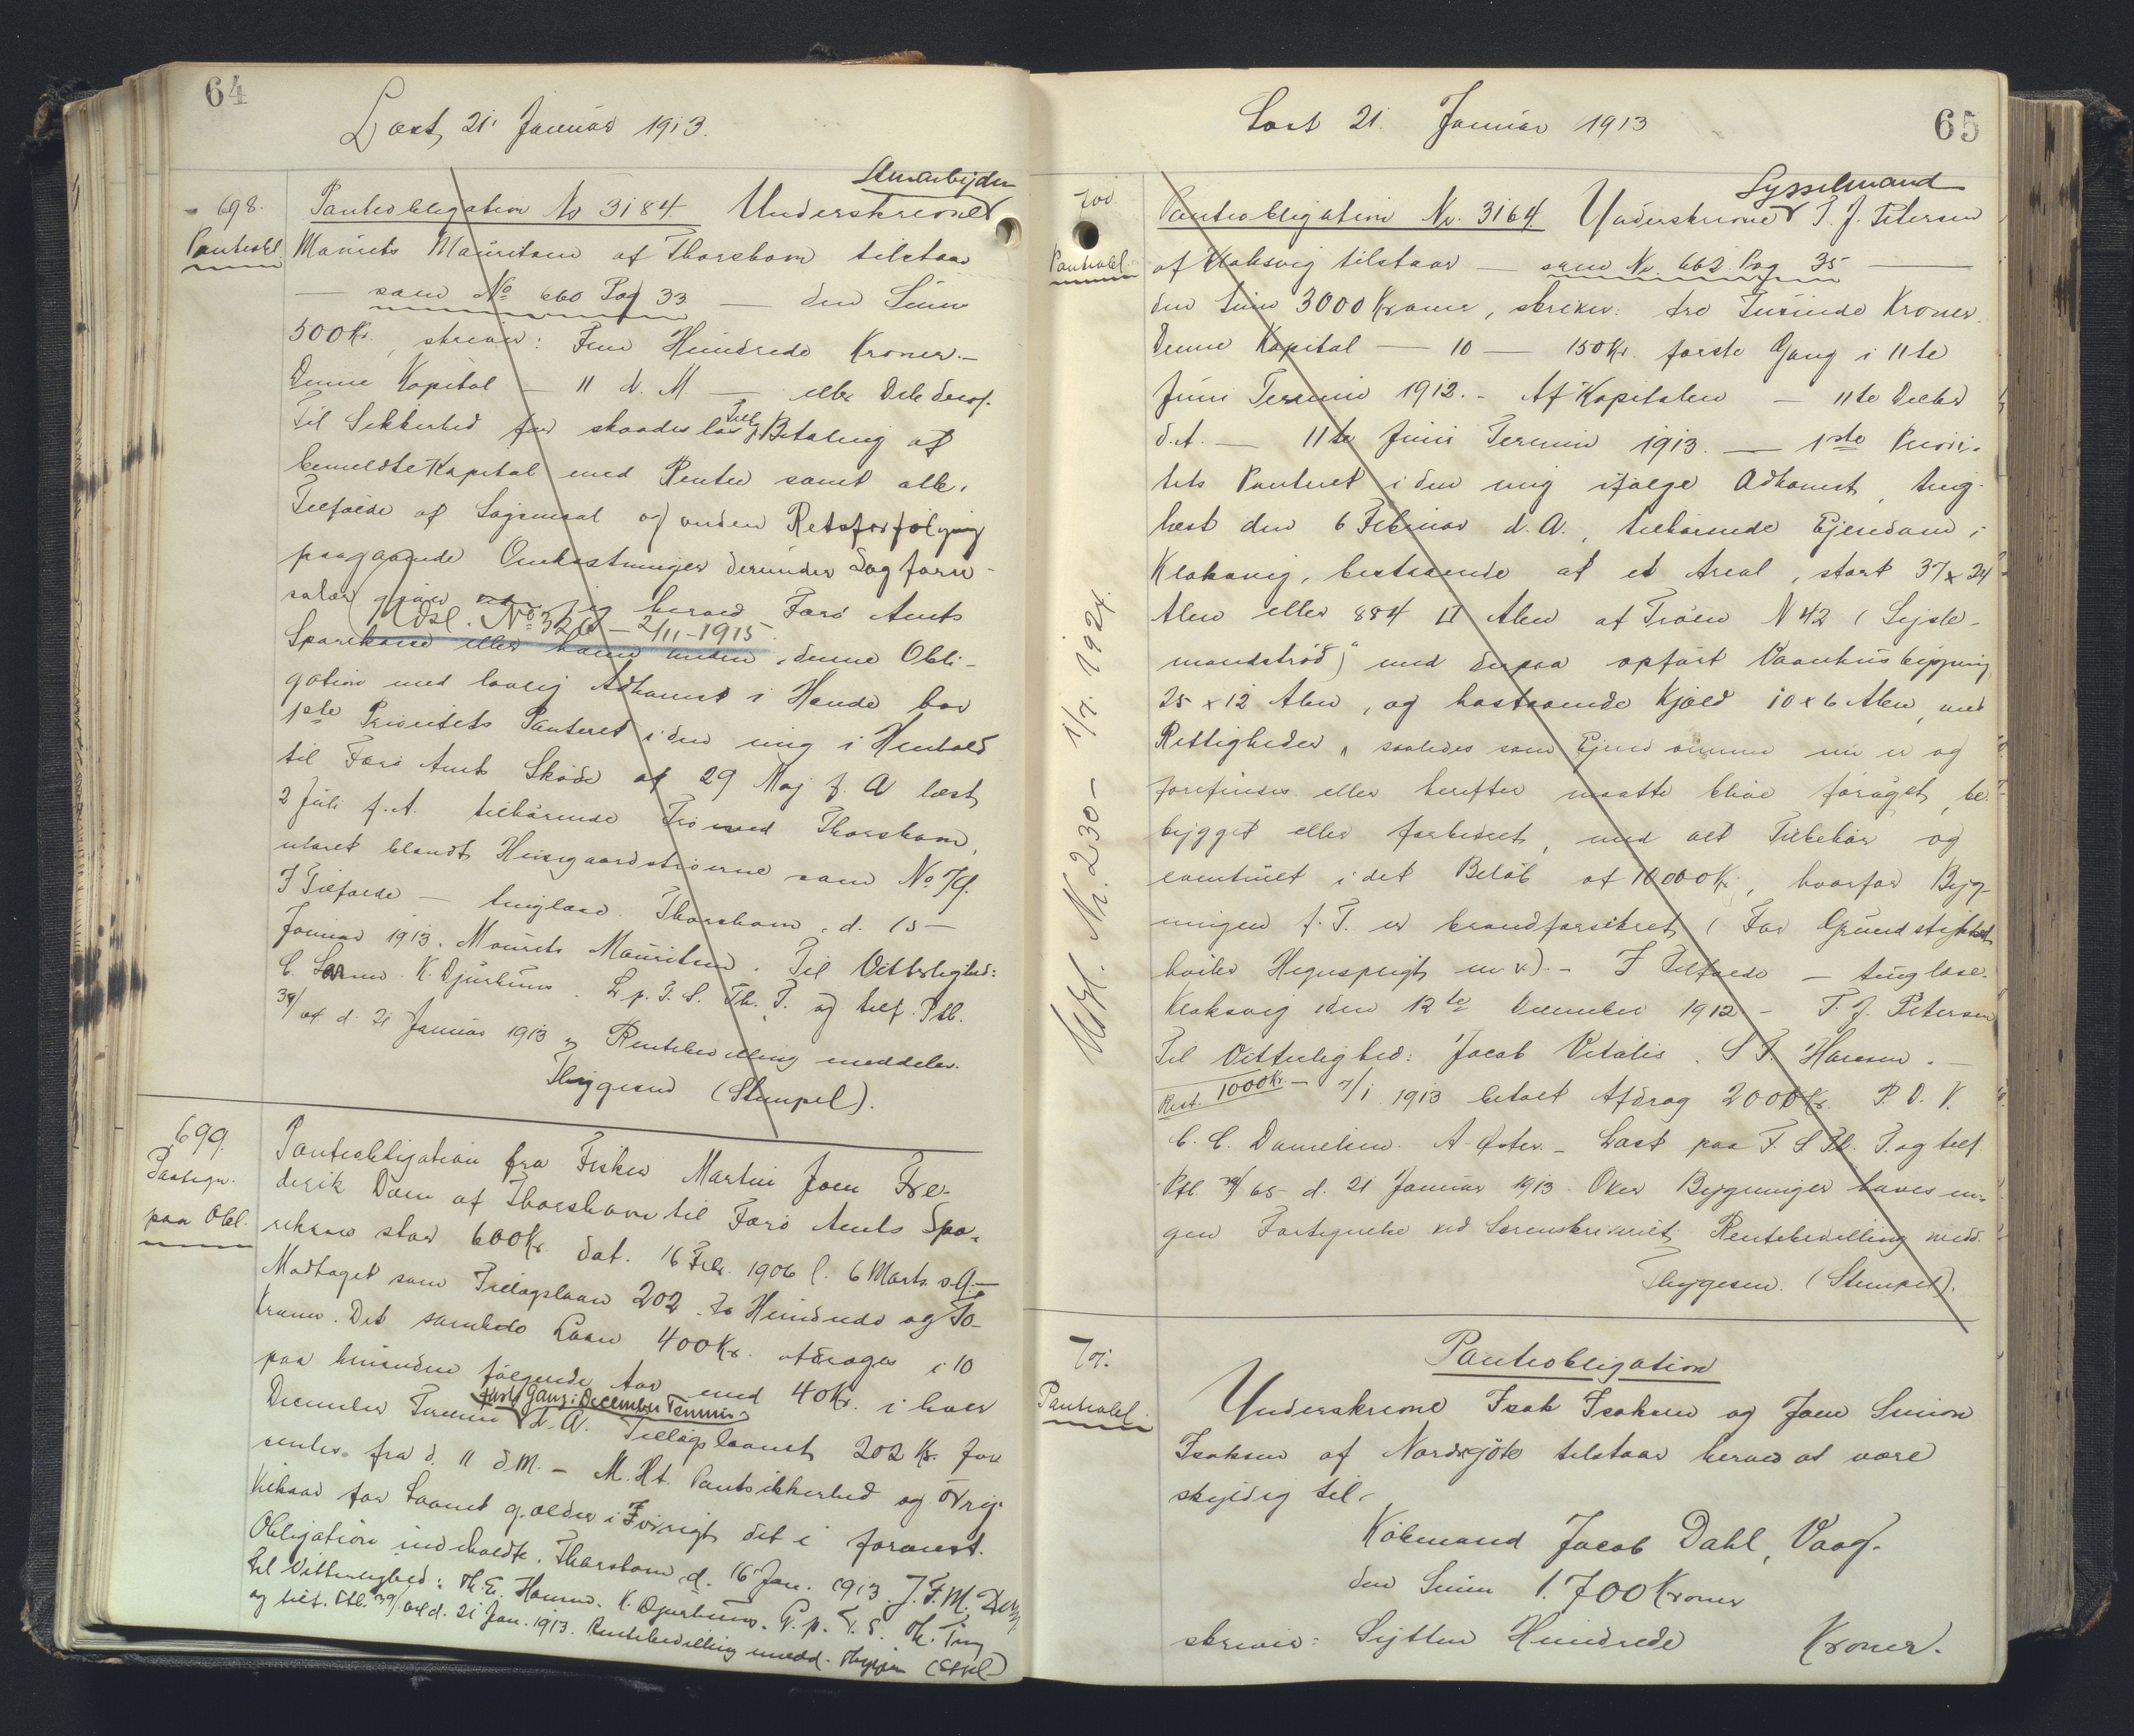 64
Læst 21. Januar 1913.
Stenarbejder
698.
Pantobligation No 3184 Underskrevne
Pantobl.
Maurits Mauritsen af Thorshavn tilstaar
— som No 660 Pag 33 — den Sum
500 Kr., skriver: Fem Hundrede Kroner.—
Denne Kapital — 11 d. M — eller Dele deraf.
Til Sikkerhed for skadeslös Betaling af
bemeldte Kapital med Renter samt alle,
Tilfælde af Sagsmaal og anden Retsforfølgning
paagaaende Omkostninger derunder Sagfører-
salær giver jeg herved Færø Amts
Udsl. No 326 — 2/11-1915.
Sparekasse eller hvem denne Obli-
gation med lovlig Adkomst i Hænde har
1ste Prioritets Panteret i den mig i Henhold
til Færø Amts Skøde af 29 Maj f. A læst
2 Juli f. A. tilhørende Trø ved Thorshavn,
utaret blandt Husgaardstrøerne som No 7
I Tilfælde — tinglæse. Thorshavn, d. 15 —
Januar 1913. Maurits Mauritsen. Til Vitterlighed:
C. K. Djurhuus. L. p. F. S. Th. T. og tilf. Ptb.
39/ d. 21 Januar 1913 Rentebevilling meddeles.
Thygesen (Stempel).
699.
Pantobligation fra Fisker Martin Joen Fre-
Paategn.
derik Dam af Thorshavn til Færø Amts Spa-
paa Obl.
rekasse stor 600 Kr. dat. 16 Febr. 1906 l. 6 Marts s. A.—
Modtaget som Tillægslaan 202. To Hundrede og To
Kroner. Det samlede Laan 400 Kr. afdrages i 10
paa hinanden følgende Aar med 40 Kr. i hver
første Gang i December Termin
December Termin d. A. Tillægslaanet 202 Kr. for
rentes fra d. 11 d.M. — M. Ht. Pantsikkerhed og Øvrig
Vilkaar for Laanet gælder i Øvrigt det i foranst.
Obligation indeholdte. Thorshavn, d. 16 Jan. 1913. J. F. M. Dam
Til Vitterlighed: K. Djurhuus. L. p. F. S. Th. Ting
og tilf. Ptb. 39/ d. 21 Jan. 1913. Rentebevilling medd. Thygesen
65
Læst 21. Januar 1913
Sysselmand
700
Pantobligation No. 3164. Underskrevne T. J. Petersen
Pantobl.
af Klaksvig tilstaar — som No. 662 Pag 35 —
den Sum 3000 Kroner, skriver: tre Tusinde Kroner.
Denne Kapital — 10 — 150 Kr. første Gang i 11te
Juni Termin 1912. - Af Kapitalen — 11te Decbr
d. A. — 11te Juni Termin 1913. — 1ste Priori-
tets Panteret i den mig ifølge Adkomst, ting-
læst den 6 Februar d. A., tilhørende Ejendom i
Klaksvig, bestaaende af et Areal, stort 37 x 24
Alen eller 884 □ Alen af Trøen N 42 (Sysle-
mandstrøð) med derpaa opført Vaanhusbygning
25 x 12 Alen, og hosstaaende Kjald 10 x 6 Alen, med
Rettigheder, saaledes som Ejendommen nu er og
forefindes eller herefter maatte blive forøget, be-
bygget eller forbedret, med alt Tilbehør og
eventuelt i det Beløb af 10000 Kr, hvorfor Byg-
ningen f. T. er brandforsikret (For Grundstykket
hviler Hegnspligt m v.). - I Tilfælde — tinglæse.
Klaksvig den 12te December 1912. - T. J. Petersen
Til Vitterlighed: Jacob Vitalis. S. F. Hansen. —
Rest. 1000 Kr. — 7/1 1913 betalt Afdrag 2000 Kr. P. D. V.
C. C. Danielsen. Læst paa F. S Th. T. og tilf
Ptb 39/65 d. 21 Januar 1913. Over Bygninger haves in-
gen Fortegnelse ved Sorenskriveriet. Rentebevilling medd.
Thygesen. (Stempel).
Udsl. Nr. 230 — 1/7. 1924.
701.
Pantobligation
Pantobl.
Underskrevne Isak Isaksen og Joen Simon
Isaksen af Nordregöte tilstaar herved at være
skyldig til
Købmand Jacob Dahl, Vaag.
den Sum 1.700 Kroner
skriver: Sytten Hundrede Kroner.